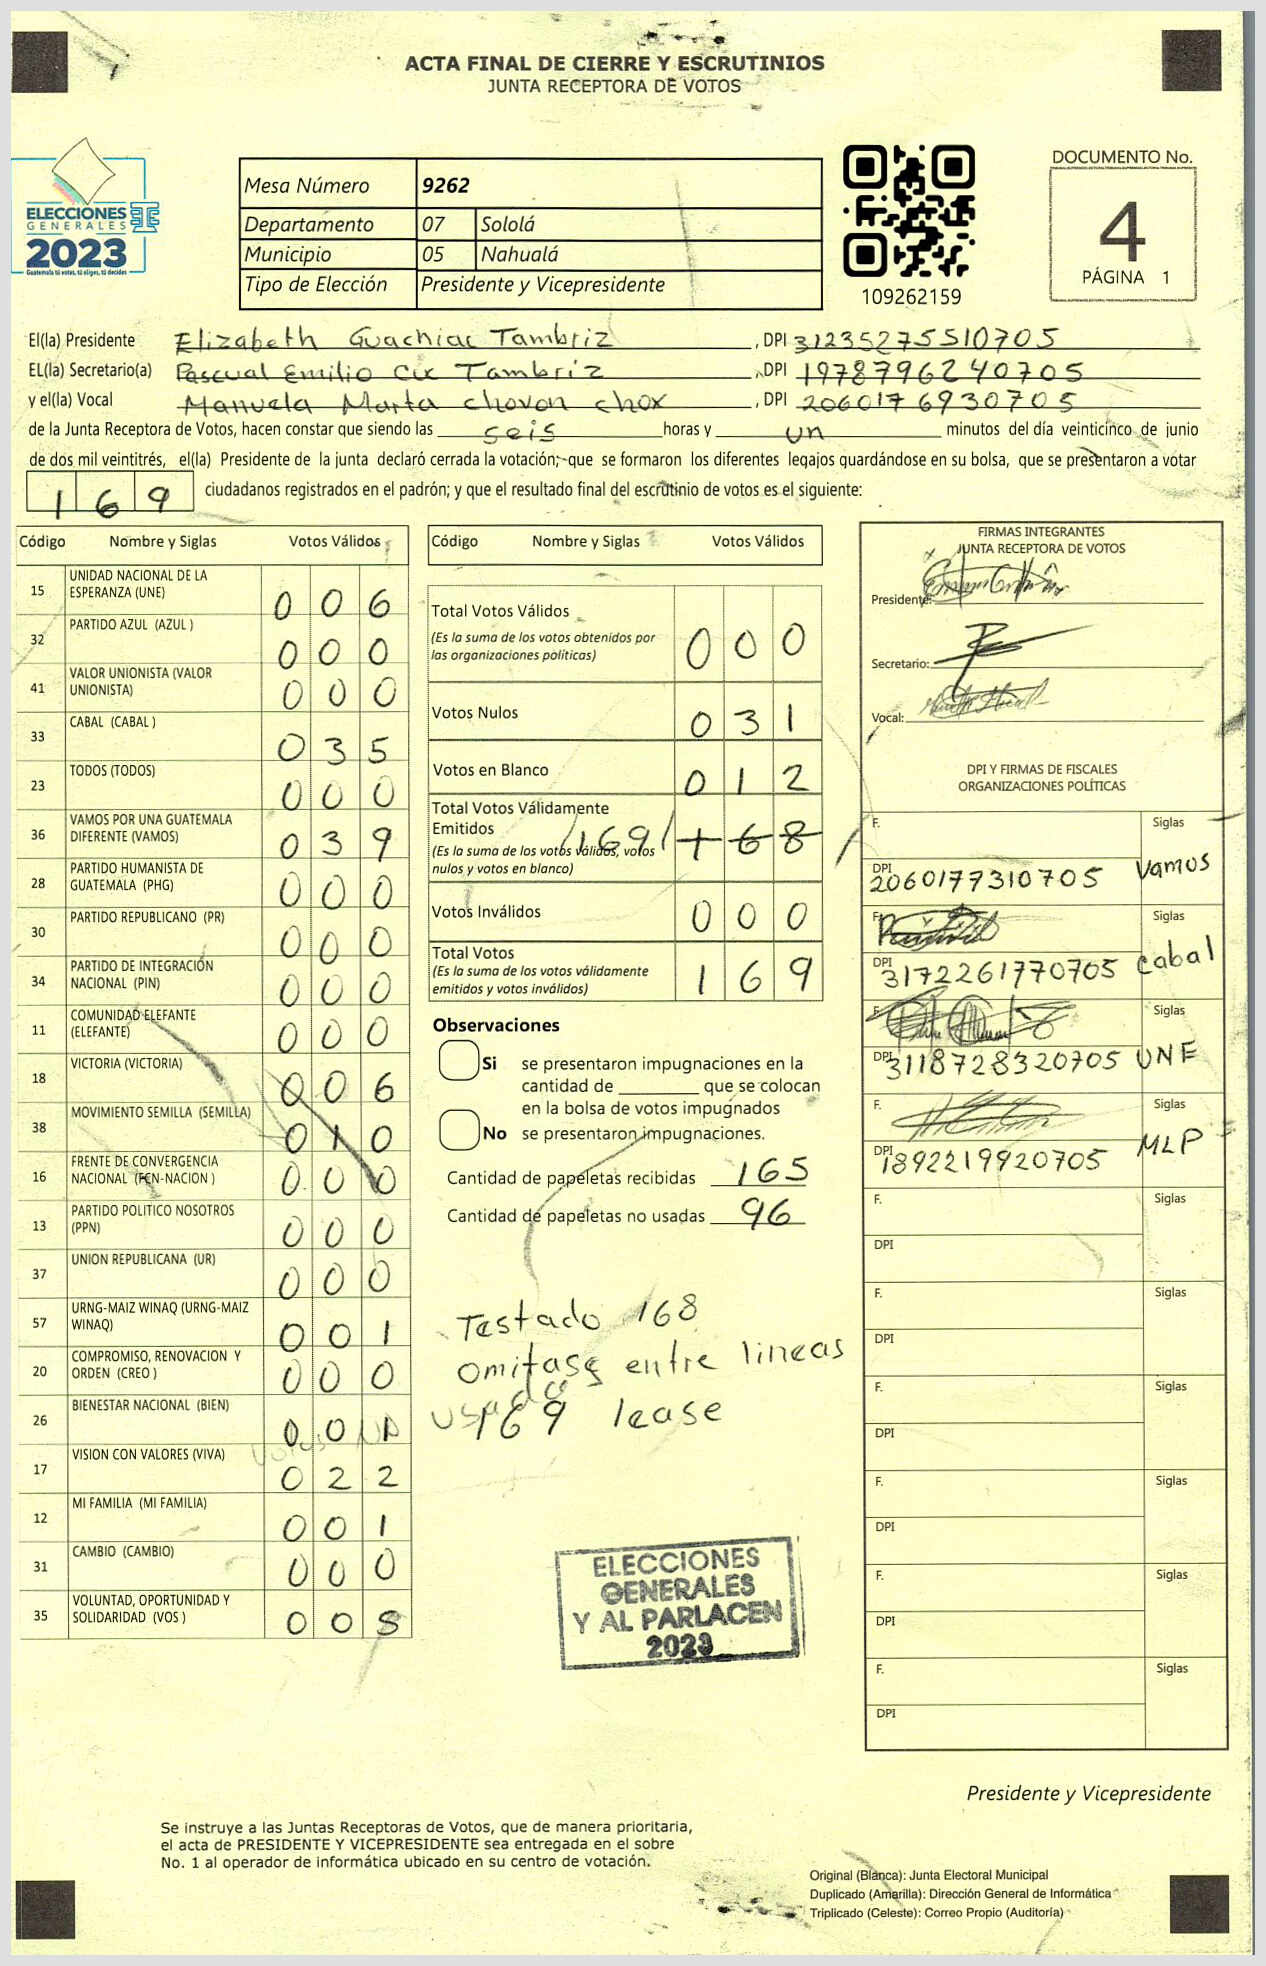 ACTA FINAL DE CIERRE Y ESCRUTINIOS
JUNTA RECEPTORA DE VOTOS
ELECCIONES
GENERALES
2023
Guatemala tú votas, tú eliges, tú decides
Mesa Número 9262
Departamento 07 Sololá
Municipio 05 Nahualá
Tipo de Elección Presidente y Vicepresidente
109262159
DOCUMENTO No.
4
PÁGINA 1
El(la) Presidente Elizabeth Guachiac Tambriz, DPI 3123527551 0705
EL(la) Secretario(a) Pascual Emilio Cix Tambriz, DPI 1978796240705
y el(la) Vocal Manuela Marta chovon chox, DPI 2060176930705
de la Junta Receptora de Votos, hacen constar que siendo las seis horas y un minutos del día veinticinco de junio
de dos mil veintitrés, el(la) Presidente de la junta declaró cerrada la votación; que se formaron los diferentes legajos guardándose en su bolsa, que se presentaron a votar
169 ciudadanos registrados en el padrón; y que el resultado final del escrutinio de votos es el siguiente:
Código Nombre y Siglas Votos Válidos
15 UNIDAD NACIONAL DE LA ESPERANZA (UNE) 006
32 PARTIDO AZUL (AZUL ) 000
41 VALOR UNIONISTA (VALOR UNIONISTA) 000
33 CABAL (CABAL ) 035
23 TODOS (TODOS) 000
36 VAMOS POR UNA GUATEMALA DIFERENTE (VAMOS) 039
28 PARTIDO HUMANISTA DE GUATEMALA (PHG) 000
30 PARTIDO REPUBLICANO (PR) 000
34 PARTIDO DE INTEGRACIÓN NACIONAL (PIN) 000
11 COMUNIDAD ELEFANTE (ELEFANTE) 000
18 VICTORIA (VICTORIA) 006
38 MOVIMIENTO SEMILLA (SEMILLA) 010
16 FRENTE DE CONVERGENCIA NACIONAL (FCN-NACION ) 000
13 PARTIDO POLITICO NOSOTROS (PPN) 000
37 UNION REPUBLICANA (UR) 000
57 URNG-MAIZ WINAQ (URNG-MAIZ WINAQ) 001
20 COMPROMISO, RENOVACION Y ORDEN (CREO ) 000
26 BIENESTAR NACIONAL (BIEN) 001
17 VISION CON VALORES (VIVA) 022
12 MI FAMILIA (MI FAMILIA) 001
31 CAMBIO (CAMBIO) 000
35 VOLUNTAD, OPORTUNIDAD Y SOLIDARIDAD (VOS ) 005
Código Nombre y Siglas Votos Válidos
Total Votos Válidos 000
(Es la suma de los votos obtenidos por
las organizaciones políticas)
Votos Nulos 031
Votos en Blanco 012
Total Votos Válidamente
Emitidos /169/ 168
(Es la suma de los votos válidos, votos
nulos y votos en blanco)
Votos Inválidos 000
Total Votos 169
(Es la suma de los votos válidamente
emitidos y votos inválidos)
Observaciones
Si se presentaron impugnaciones en la
cantidad de que se colocan
en la bolsa de votos impugnados
No se presentaron impugnaciones.
Cantidad de papeletas recibidas 165
Cantidad de papeletas no usadas 96
Testado 168
omitase entre lineas
usado
169 lease
ELECCIONES
GENERALES
Y AL PARLACEN
2023
FIRMAS INTEGRANTES
JUNTA RECEPTORA DE VOTOS
Presidente:
Secretario:
Vocal:
DPI Y FIRMAS DE FISCALES
ORGANIZACIONES POLÍTICAS
F. Siglas
DPI 2060177310705 Vamos
F. Siglas
DPI 3172261770705 Cabal
F. Siglas
DPI 3118728320705 UNE
F. Siglas
DPI 1892219920705 MLP
F. Siglas
DPI
F. Siglas
DPI
F. Siglas
DPI
F. Siglas
DPI
F. Siglas
DPI
F. Siglas
DPI
Presidente y Vicepresidente
Se instruye a las Juntas Receptoras de Votos, que de manera prioritaria,
el acta de PRESIDENTE Y VICEPRESIDENTE sea entregada en el sobre
No. 1 al operador de informática ubicado en su centro de votación.
Original (Blanca): Junta Electoral Municipal
Duplicado (Amarilla): Dirección General de Informática
Triplicado (Celeste): Correo Propio (Auditoría)